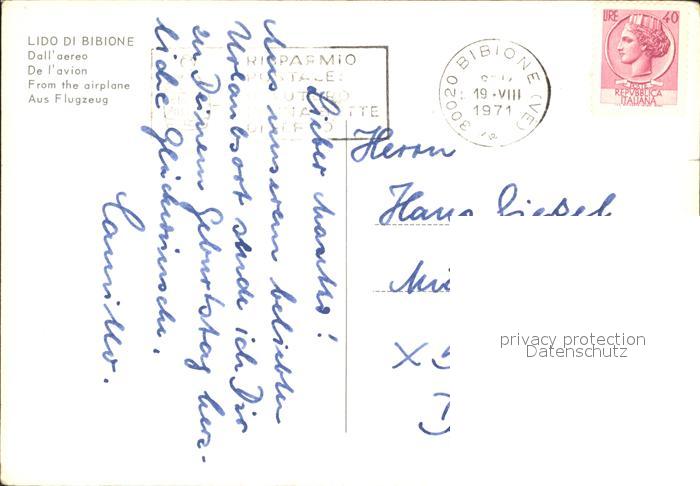 LIDO DI BIBIONE
Dall'aereo
De l'avion
From the airplane
Aus Flugzeug
RISPARMIO
POSTALE:
30020 BIBIONE (VE)
19·VIII
1971
LIRE 40
POSTE
REPVBBLICA
ITALIANA
Lieber
Aus unserem beliebten
Urlaubsort sende ich Dir
zu Deinem Geburtstag herz-
liche Glückwünsche.
Camillo.
Herrn
Hans
privacy protection
Datenschutz